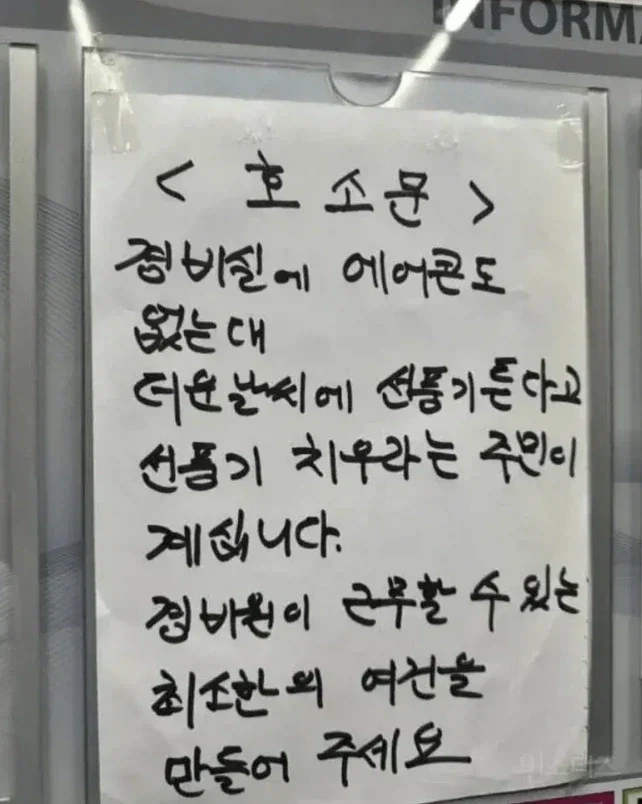 INFORMA
< 호 소 문 >
경비실에 에어콘도
없는대
더운날씨에 선풍기튼다고
선풍기 치우라는 주민이
계십니다.
경비원이 근무할 수 있는
최소한의 여건을
만들어 주세요
인스티즈